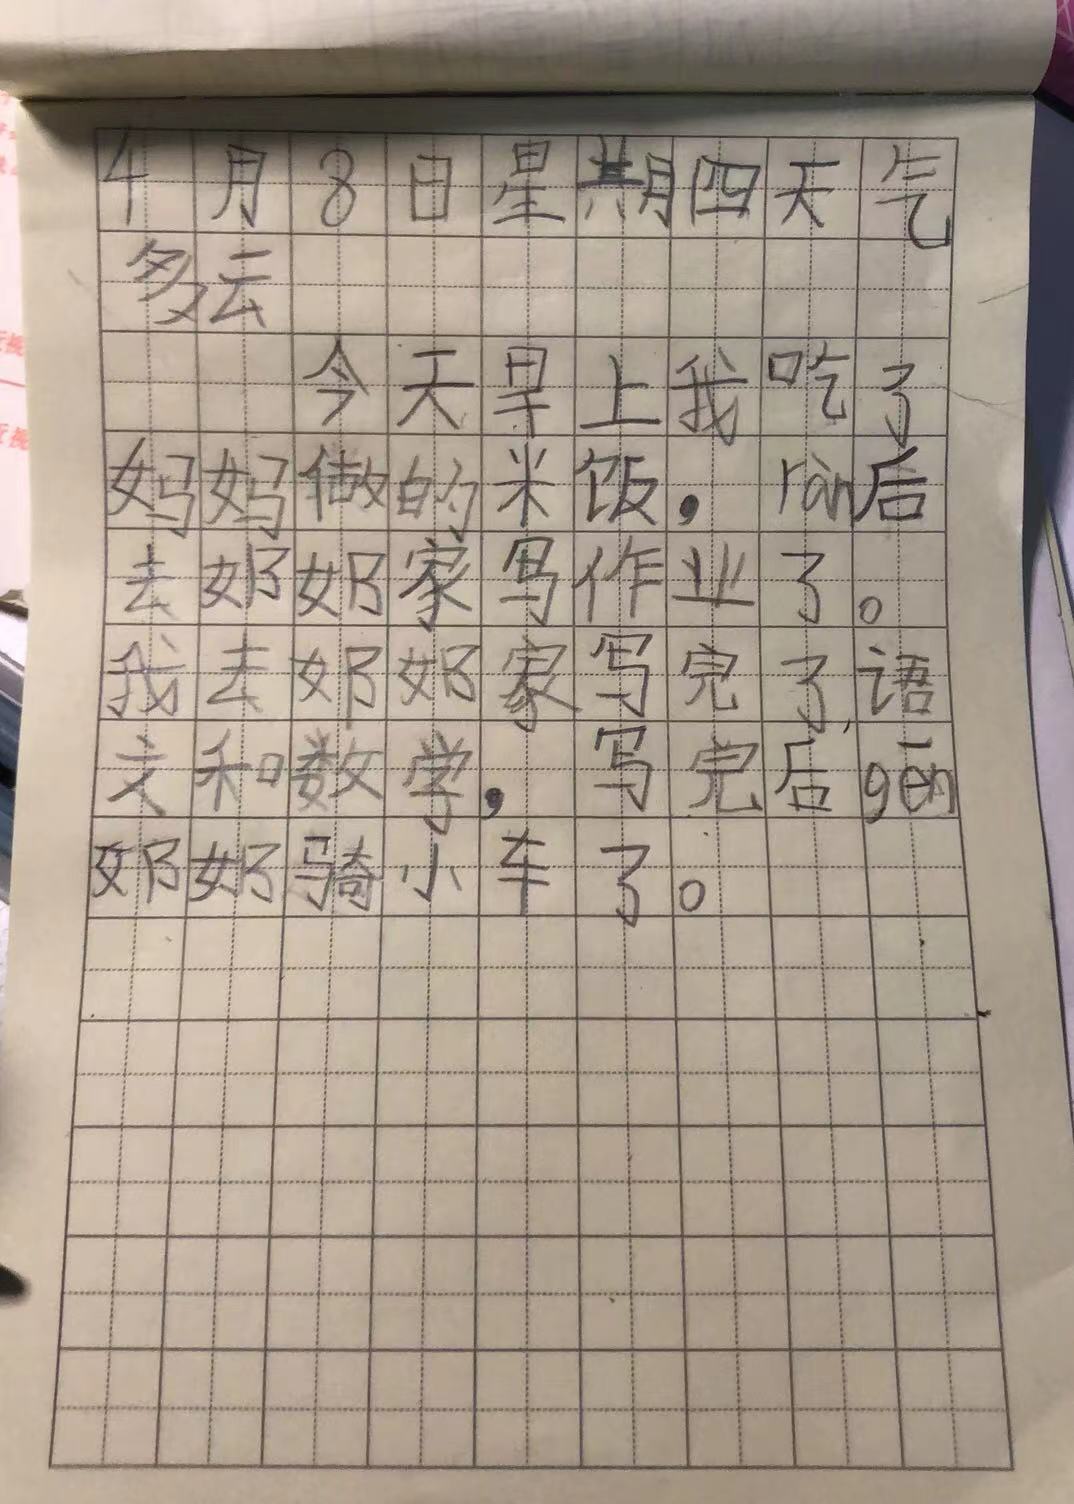 4月8日星期四天气
多云
今天早上我吃了
妈妈做的米饭，rán后
去奶奶家写作业了。
我去奶奶家写完了语
文和数学，写完后gēn
奶奶骑小车了。